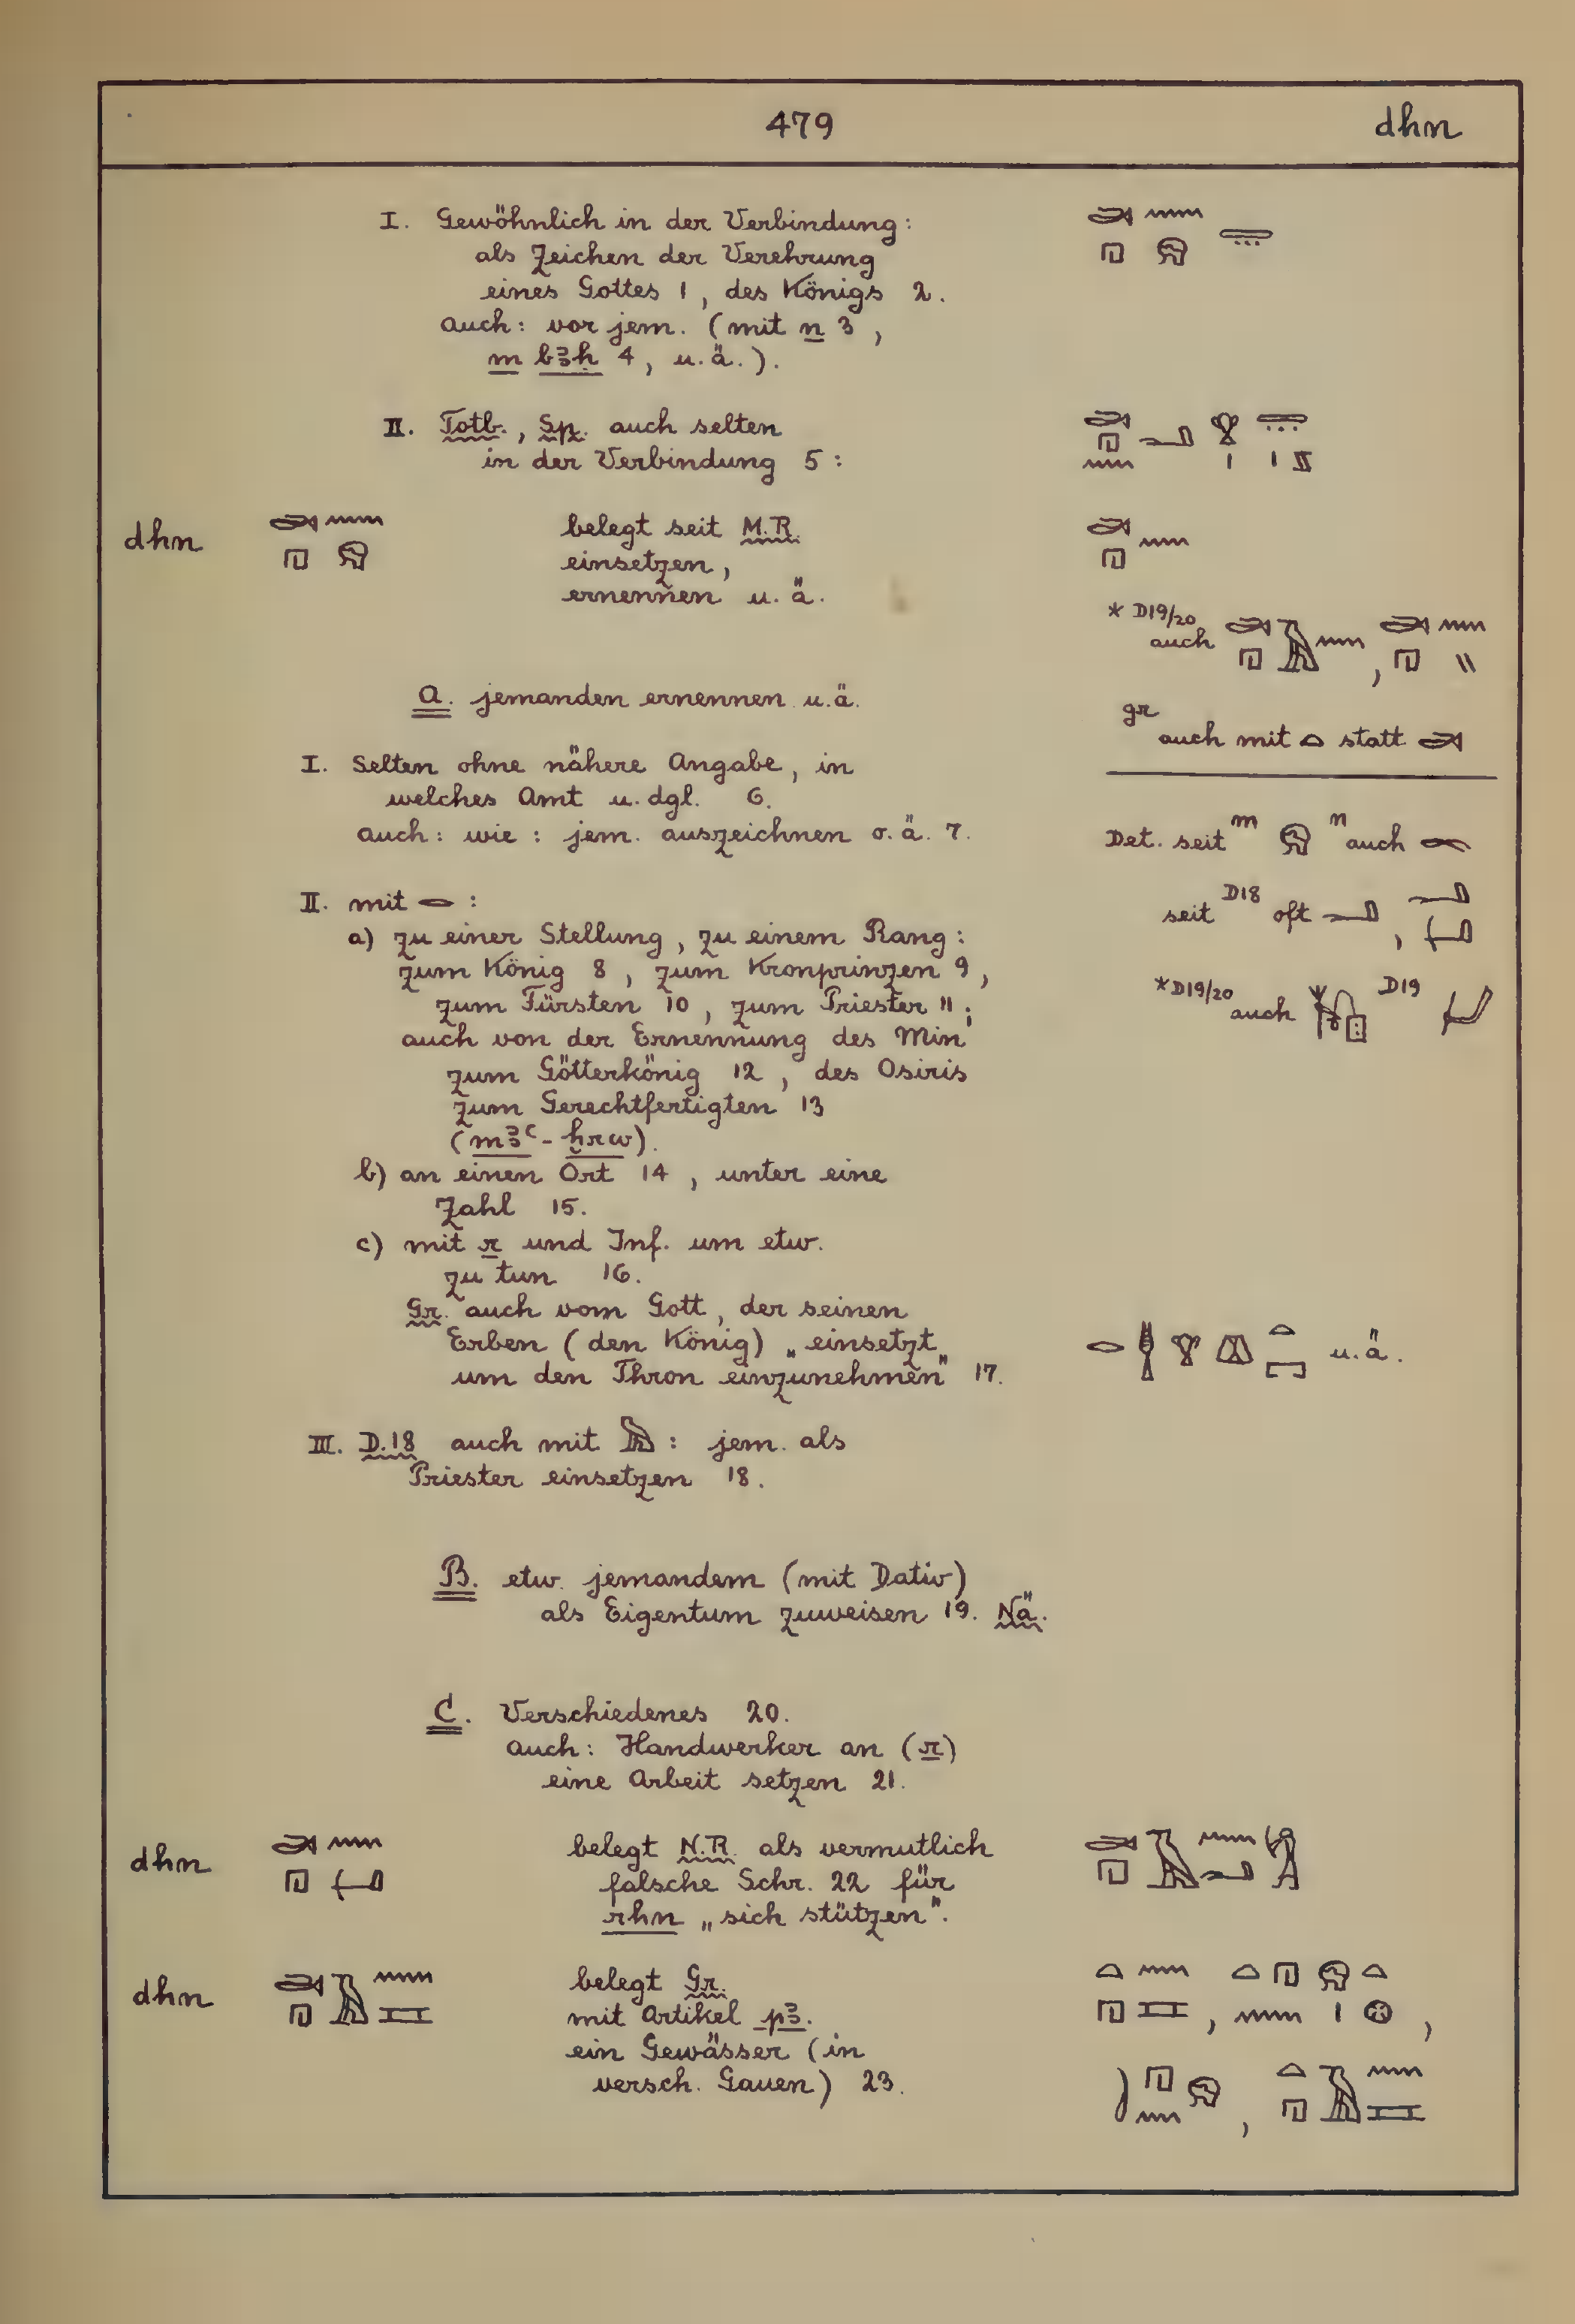 479 dhn
I. Gewöhnlich in der Verbindung:
als Zeichen der Verehrung
eines Gottes 1, des Königs 2.
auch: vor jem. (mit n 3,
m bꜣḥ 4, u. ä.).
II. Totb., Sp. auch selten
in der Verbindung 5:
dhn belegt seit M.R.
einsetzen,
ernennen u. ä.
* D19/20
auch
A. jemanden ernennen u.ä.
gr
auch mit 𓏏 statt 𓆛
I. Selten ohne nähere Angabe, in
welches Amt u. dgl. 6.
auch: wie: jem. auszeichnen o. ä. 7.
Det. seit m n auch
II. mit 𓂋 :
seit D18 oft
a) zu einer Stellung, zu einem Rang:
zum König 8, zum Kronprinzen 9,
zum Fürsten 10, zum Priester 11;
*D19/20 auch D19
auch von der Ernennung des Min
zum Götterkönig 12, des Osiris
zum Gerechtfertigten 13
(mꜣꜥ-ḫrw).
b) an einen Ort 14, unter eine
Zahl 15.
c) mit r und Inf. um etw.
zu tun 16.
Gr. auch vom Gott, der seinen
Erben (den König) „einsetzt
um den Thron einzunehmen" 17.
u. ä.
III. D.18 auch mit 𓅓 : jem. als
Priester einsetzen 18.
B. etw. jemandem (mit Dativ)
als Eigentum zuweisen 19. Nä.
C. Verschiedenes 20.
auch: Handwerker an (r)
eine Arbeit setzen 21.
dhn belegt N.R. als vermutlich
falsche Schr. 22 für
rhn „sich stützen".
dhn belegt Gr.
mit Artikel pꜣ.
ein Gewässer (in
versch. Gauen) 23.